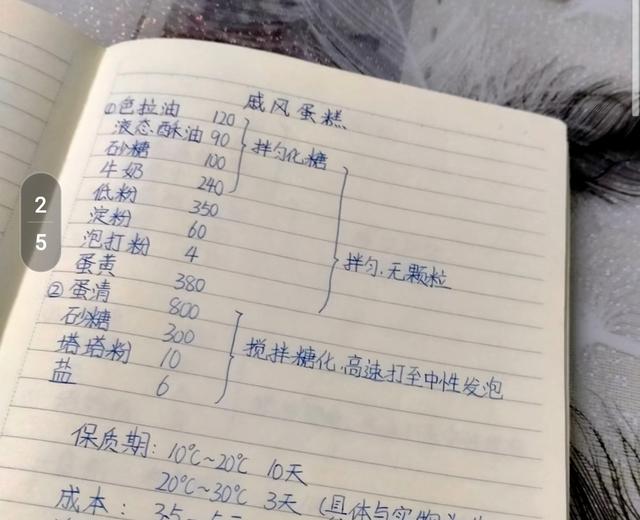 戚风蛋糕
①色拉油 120
液态酥油 90
砂糖 100
牛奶 240
拌匀化糖
低粉 350
淀粉 60
泡打粉 4
蛋黄 380
拌匀.无颗粒
②蛋清 800
砂糖 300
塔塔粉 10
盐 6
搅拌糖化.高速打至中性发泡
保质期: 10℃~20℃ 10天
20℃~30℃ 3天 (具体与实物为
成本: 3.5
2
5